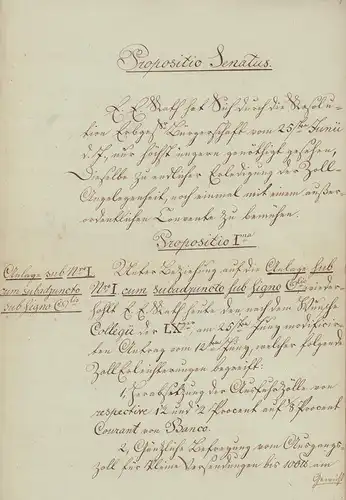 Propositio Senatus.
E. E. Rath hat Sich durch die Resolu-
tion Erbges. Bürgerschaft vom 25sten Junii
d. J. nur höchst ungern genöthigt gesehen,
Dieselbe zu endlicher Erledigung der Zoll-
Angelegenheit, noch einmal mit einem außer-
ordentlichen Convente zu bemühen.
Propositio Ima
Anlage sub Nro I
cum subadjuncto
sub signo
Unter Beziehung auf die Anlage sub
Nro I cum subadjuncto sub signo wieder-
hohlt E. E. Rath heute den nach dem Wunsche
Collegii der LXger am 25sten Juny modificir-
ten Antrag vom 12ten Juny, welcher folgende
Zoll Erleichterungen begreift:
1, Herabsetzung der Ausfuhrzölle von
respective 12 und 2 Procent auf 8 Procent
Courant von Banco.
2, Gänzliche Befreyung vom Ausgangs-
Zoll für kleine Versendungen bis 100 lb am
Gewicht